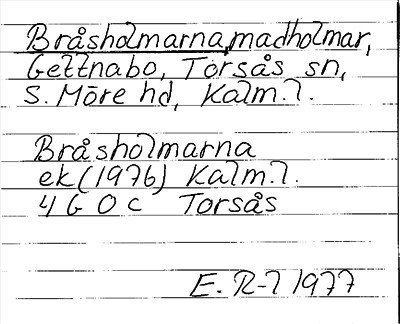 Bråsholmarna, madholmar,
Gettnabo, Torsås sn,
S. Möre hd, Kalm. l.
Bråsholmarna
ek (1976) Kalm. l.
4 G 0 c Torsås
E. R-l 1977